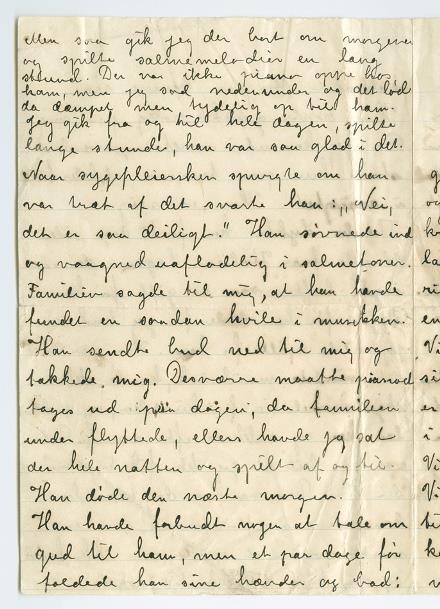 Men saa gik jeg der bort om morgenen
og spilte salmemelodier en lang
stund. Der var ikke piano oppe hos
ham, men jeg sad nedenunder og det lød
da dæmpet men tydelig op til ham.
Jeg gik fra og til hele dagen, spilte
lange stunder, han var saa glad i det.
Naar sygepleiersken spurgte om han
var træt af det svarte han: „Nei,
det er saa deiligt." Han søvnede ind
og vaagned uafladelig i salmetoner.
Familien sagde til mig, at han havde
fundet en saadan hvile i musikken.
Han sendte bud ned til mig og
takkede mig. Desværre maatte pianoet
tages ud paa dagen, da familien
under flyttede, ellers havde jeg sat
der hele natten og spilt af og til.
Han døde den næste morgen.
Han havde forbudt nogen at tale om
gud til ham, men et par dage før
foldede han sine hænder og bad: